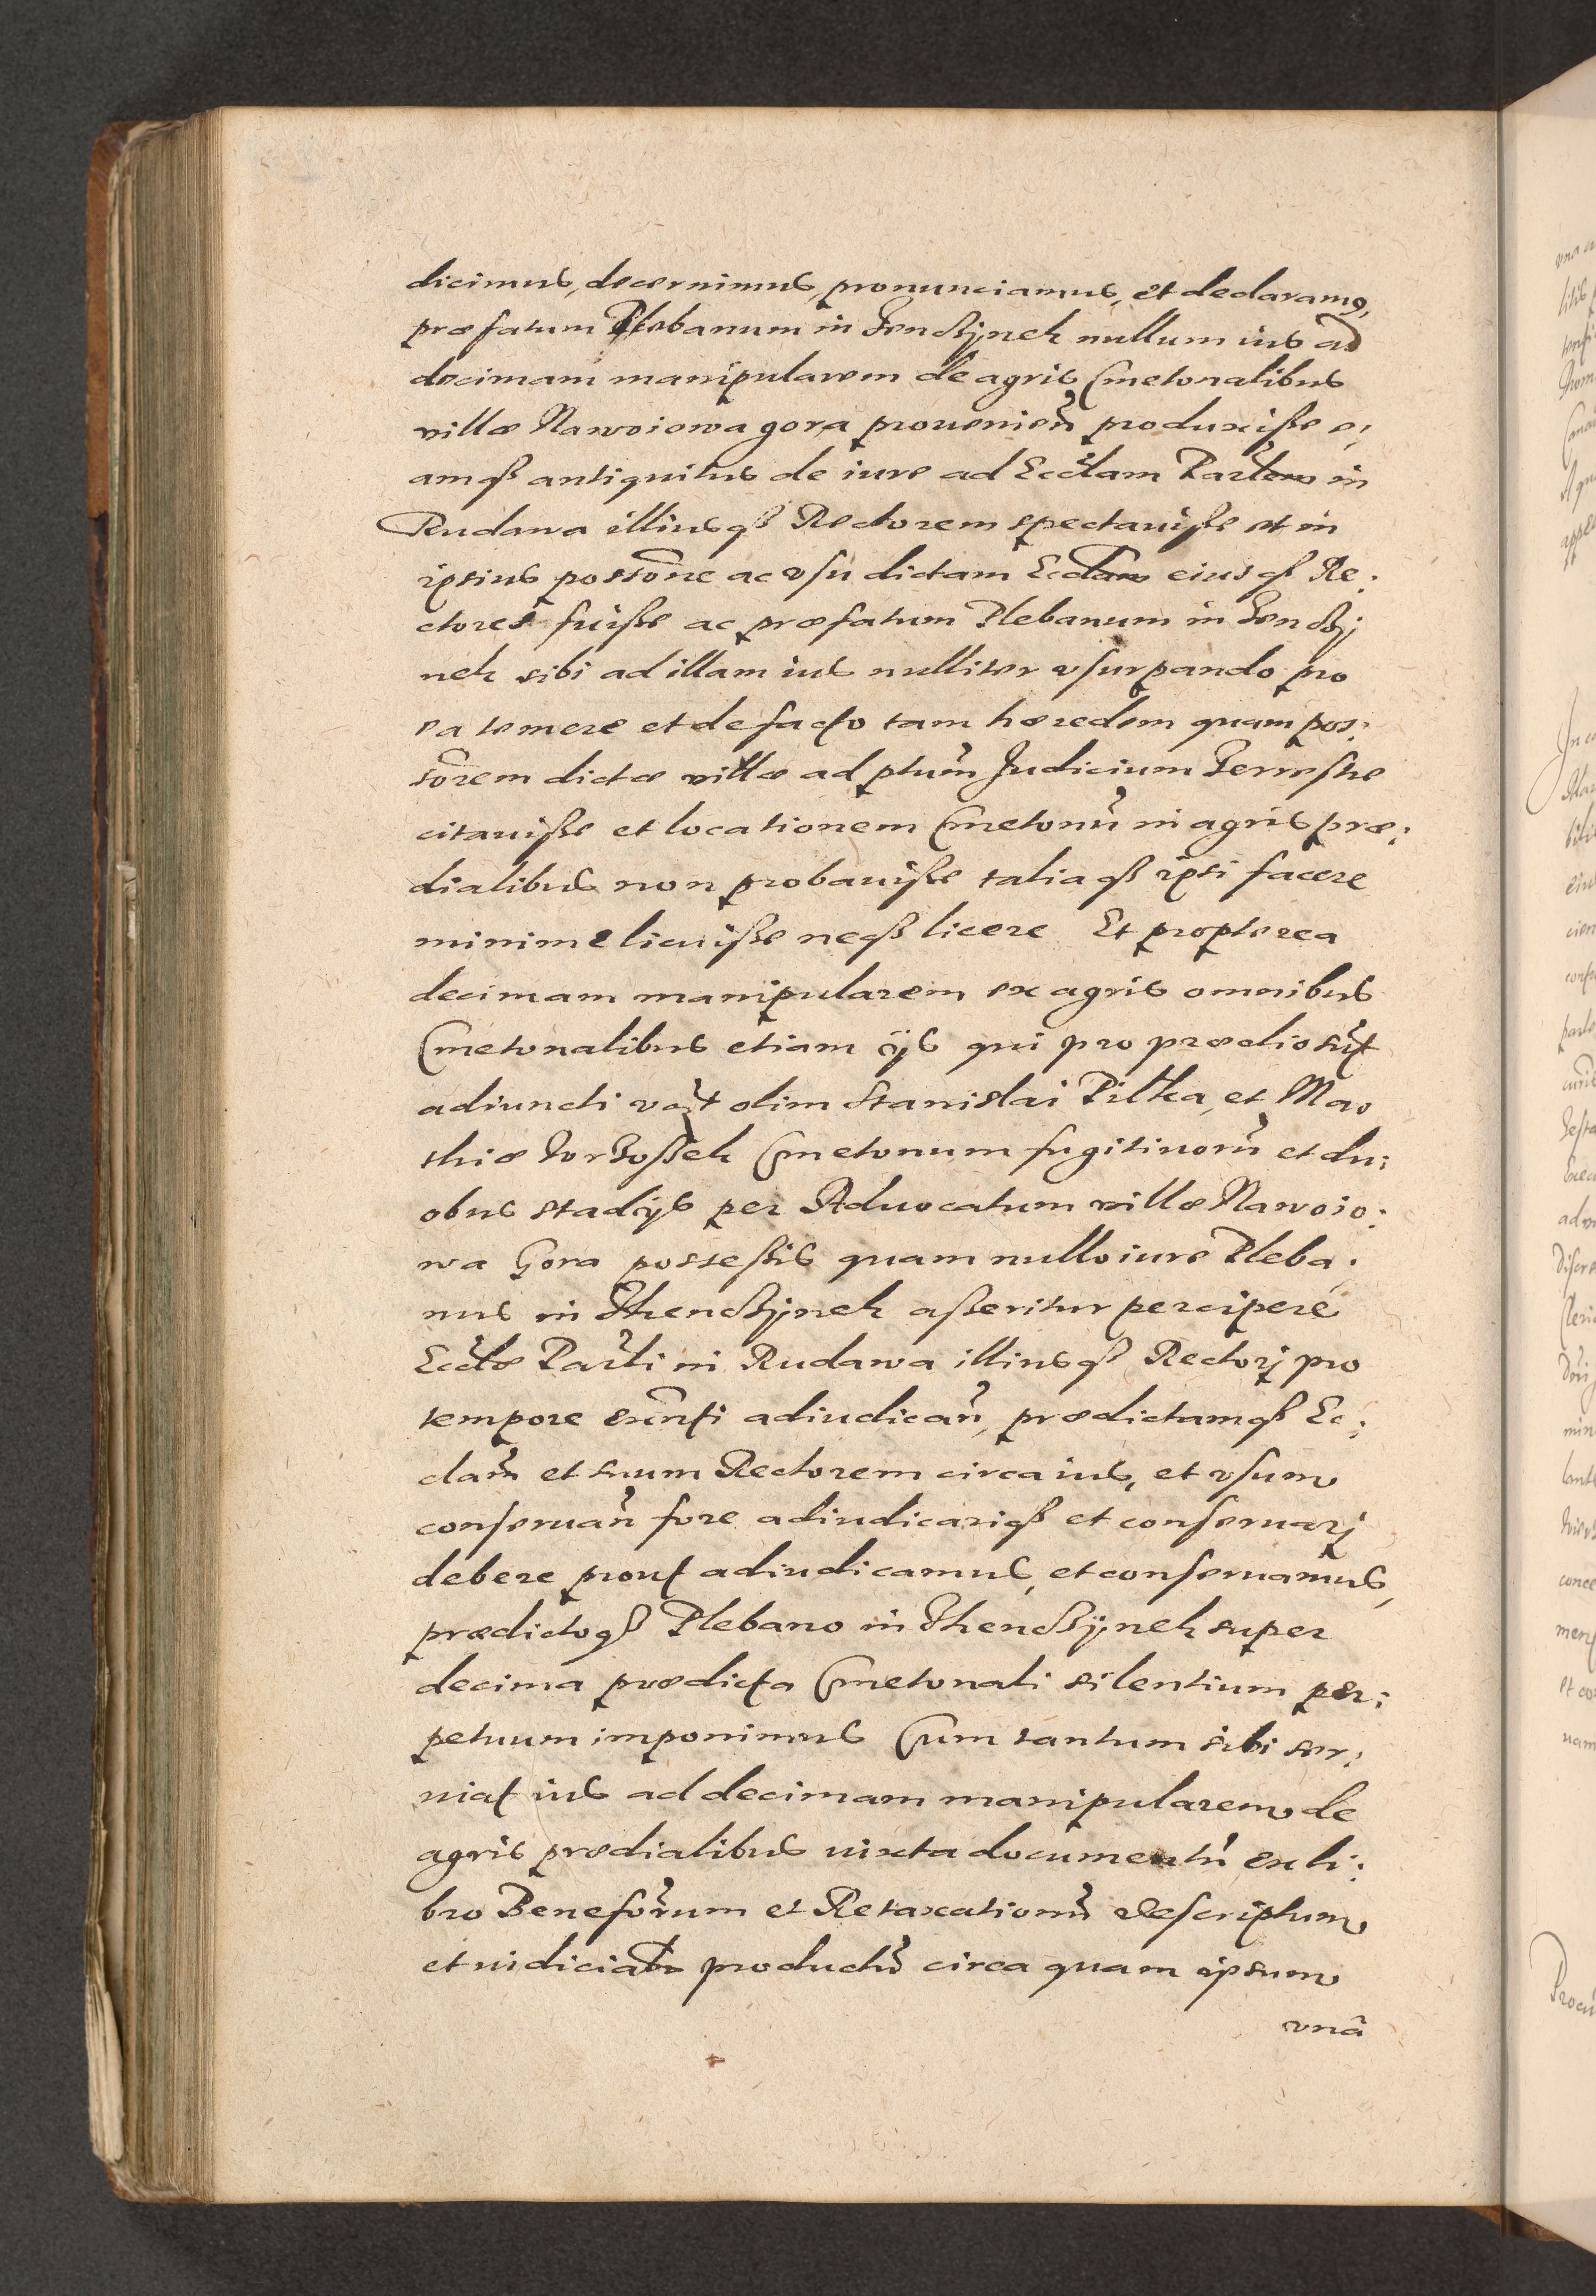 dicimus, decernimus, pronunciamus, et declaramꝰ,
præfatum Plebanum in Tenczÿnek nullum ius ad
decimam manipularem de agris Cmetonalibus
villæ Nawoiowa gora prouenieñ produxiße e:
amqȝ antiquitus de iure ad Eccliam Parlem in
Rudawa illiusqȝ Rectorem spectauiße et in
ipsius possõne ac vsu dictam Eccliam eiusqȝ Re:
ctores fuiße ac præfatum Plebanum in Tenczÿ
nek sibi ad illam ius nulliter vsurpando pro
ea temere et de facto tam hæredem quam pos:
sorem dictæ villæ ad ptum Judicium Terrestre
citauiße et locationem Cmetonũ in agris præ:
dialibus non probauiße taliaqȝ ipsi facere
minime licuiße neqȝ licere Et propterea
decimam manipularem ex agris omnibus
Cmetonalibus etiam ijs qui pro prædio sũt
adiuncti olim Stanislai Pilka, et Ma
thiæ Cmetonum fugitiuorũ et du:
obus stadijs per Aduocatum villæ Nawoio:
wa Gora posseßis quam nullo iure Pleba:
nus in Thenczÿnek aßeritur percipere
Eccliæ Parli in Rudawa illiusqȝ Rectorj pro
tempore exñti adiudicañ, prædictamqȝ Ec:
cliam et suum Rectorem circa ius, et vsum
conseruañ fore adiudicariqȝ et conseruarj
debere prout adiudicamus, et conseruamus,
prædictoqȝ Plebano in Thenczÿnek super
decima prædicta Cmetonali silentium per:
petuum imponimus Cum tantum sibi ser:
uiat ius ad decimam manipularem de
agris prædialibus iuxta documentũ ex li:
bro Benefõrum et Retaxationũ descriptum
et iudicialr productũ circa quam ipsum
vnà